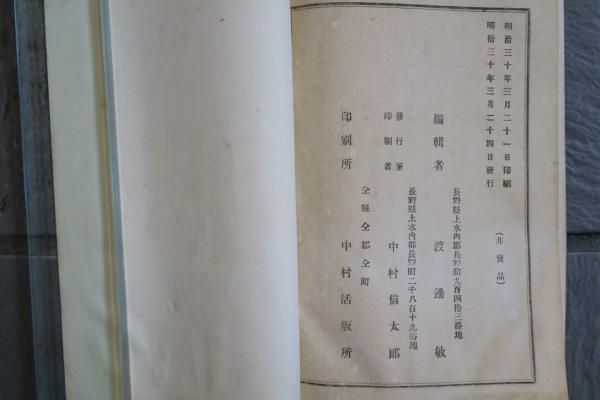 明治三十年三月二十一日印刷
明治三十年三月二十四日發行
（非賣品）
長野縣上水內郡長野町九百四拾三番地
編輯者 渡邊敏
長野縣上水內郡長野町二千八百十九番地
發行兼
印刷者 中村信太郎
仝縣仝郡仝町
印刷所 中村活版所